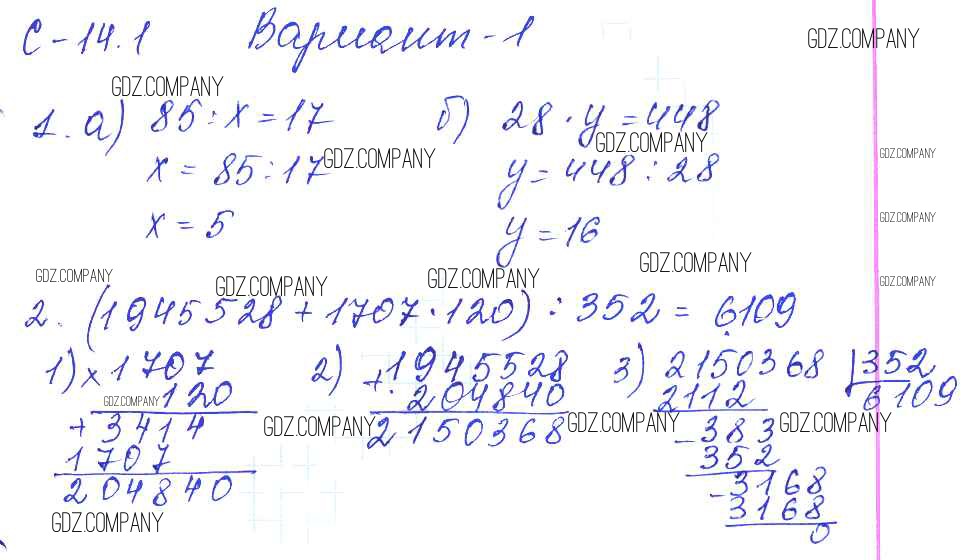 С-14.1 Вариант-1
GDZ.COMPANY
GDZ.COMPANY
1. а) 85 : x = 17 б) 28 · y = 448
GDZ.COMPANY GDZ.COMPANY GDZ.COMPANY
x = 85 : 17 y = 448 : 28
x = 5 y = 16
GDZ.COMPANY
GDZ.COMPANY GDZ.COMPANY GDZ.COMPANY GDZ.COMPANY GDZ.COMPANY
2. (1945528 + 1707 · 120) : 352 = 6109
1) × 1707 2) + 1945528 3) 2150368 | 352
120 204840 2112 6109
GDZ.COMPANY
+ 3414 2150368 - 383
GDZ.COMPANY GDZ.COMPANY GDZ.COMPANY
1707 352
204840 - 3168
3168
GDZ.COMPANY
0